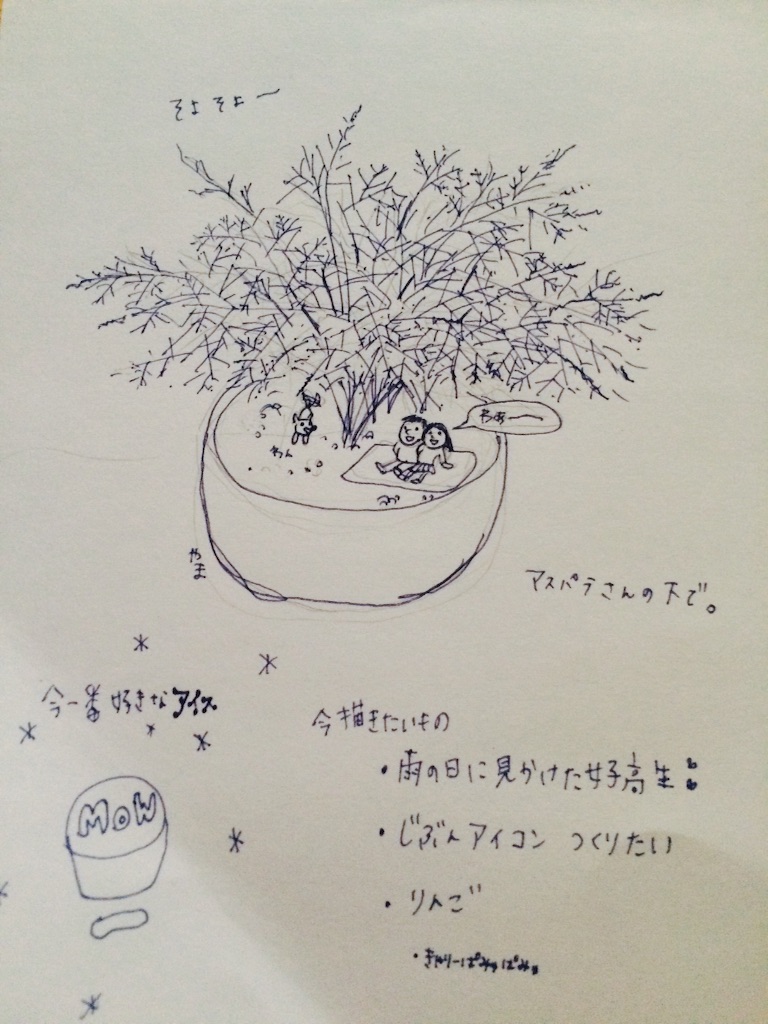 そよそよ〜
わぁ〜
わん
やま
アスパラさんの下で。
今一番好きなアイス
MOW
今描きたいもの
・雨の日に見かけた女子高生
・じぶんアイコン つくりたい
・りんご
・きゃりーぱみゅぱみゅ